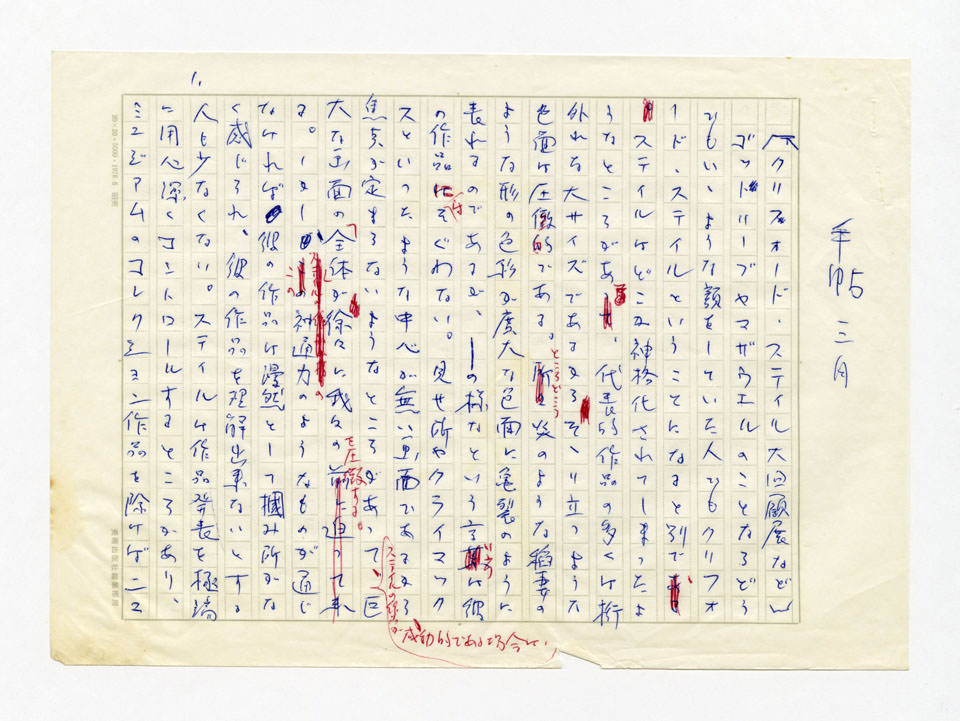 手帖 三月
1.
「クリフォード・スティル大回顧展など」
ゴットリーブやマザウエルのことならどう
でもいいような顔をしていた人でもクリフォ
ード・スティルということになると別で
スティルはどこか神格化されてしまったよ
うなところがある、代表的作品の多くは桁
外れな大サイズであるからそそり立つような
色面は圧倒的である。ところどころ炎のような稲妻の
ような形の色彩が広大な色面に亀裂のように
表れるのであるが、―の様なという言い方は彼
の作品にはそぐわない。見せ所やクライマック
スといったような中心が無い画面であるから
焦点が定まらないようなところがあって、巨
大な画面の全体が徐々に我々を圧倒する
る。しかし、この神通力のようなものが通じ
なければ彼の作品は漫然として掴み所がな
く感じられ、彼の作品を理解出来ないとする
人も少なくない。スティルは作品発表を極端
に用心深くコントロールするところがあり、
ミュジアムのコレクション作品を除けばニュ
スティルの作品が感動的である場合は、
20×20